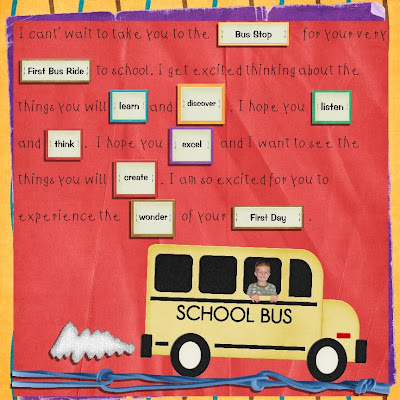 I cant' wait to take you to the Bus Stop for your very
First Bus Ride to school. I get excited thinking about the
things you will learn and discover . I hope you listen
and think . I hope you excel and I want to see the
things you will create . I am so excited for you to
experience the wonder of your First Day .
SCHOOL BUS